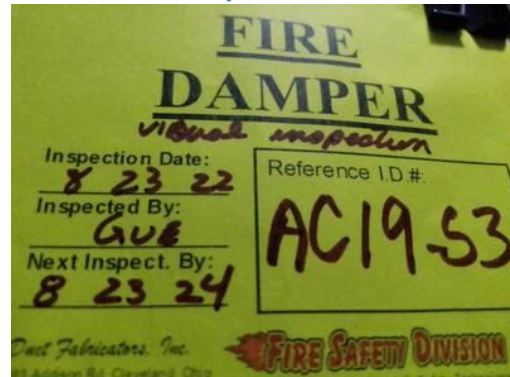 FIRE
DAMPER
visual inspection
Inspection Date:
8 23 22
Inspected By:
GUE
Next Inspect. By:
8 23 24
Reference I.D.#:
AC19-S3
Duct Fabricators, Inc.
FIRE SAFETY DIVISION
Addison Rd. Cleveland, Ohio